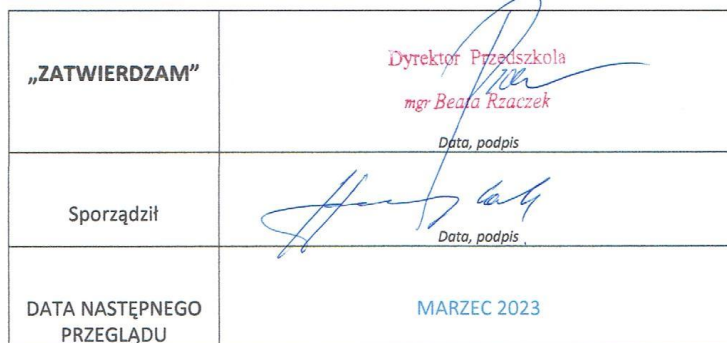 „ZATWIERDZAM”
Dyrektor Przedszkola
mgr Beata Rzaczek
Data, podpis
Sporządził
Data, podpis
DATA NASTĘPNEGO
PRZEGLĄDU
MARZEC 2023